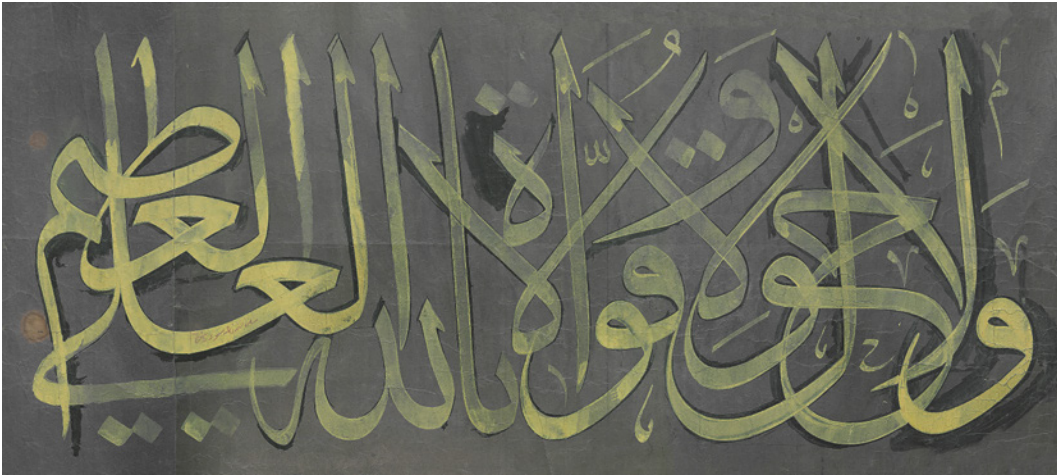 ولا حول ولا قوة الا بالله العلي العظيم